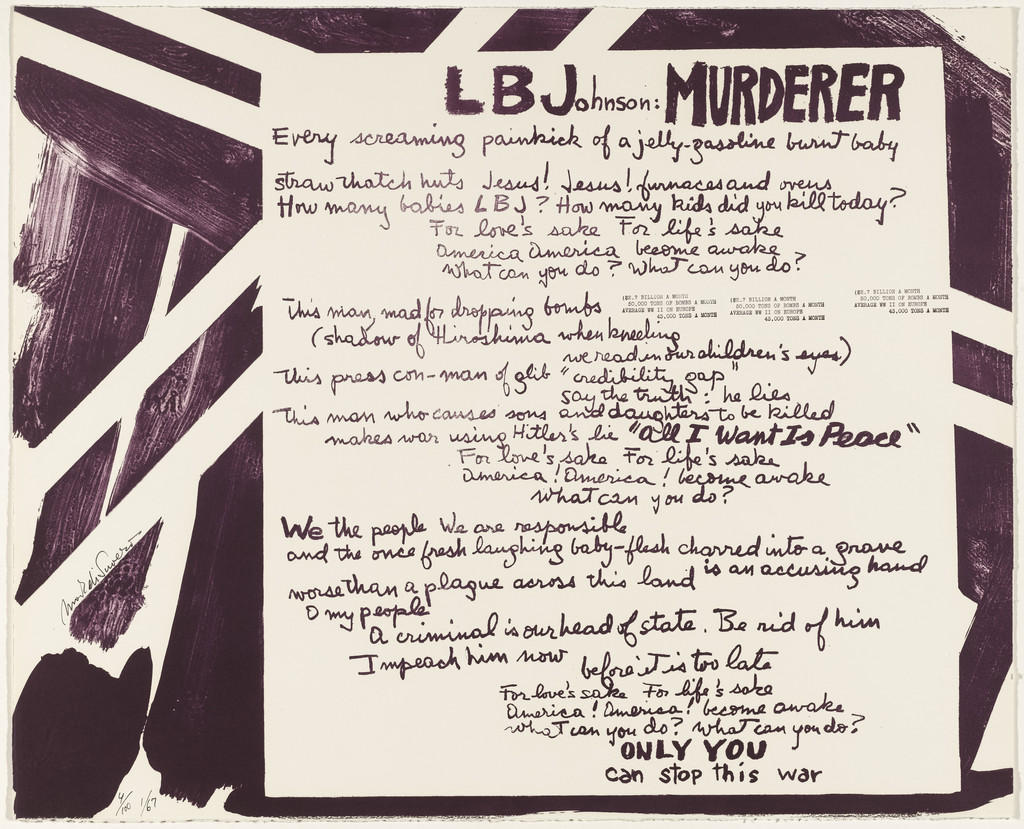 LBJohnson: MURDERER
Every screaming painkick of a jelly-gasoline burnt baby
straw thatch huts Jesus! Jesus! furnaces and ovens
How many babies LBJ? How many kids did you kill today?
For love's sake For life's sake
America America become awake
What can you do? What can you do?
This man, mad for dropping bombs
($2.7 BILLION A MONTH
50,000 TONS OF BOMBS A MONTH
AVERAGE WW II ON EUROPE
45,000 TONS A MONTH
($2.7 BILLION A MONTH
50,000 TONS OF BOMBS A MONTH
AVERAGE WW II ON EUROPE
45,000 TONS A MONTH
($2.7 BILLION A MONTH
50,000 TONS OF BOMBS A MONTH
AVERAGE WW II ON EUROPE
45,000 TONS A MONTH
(shadow of Hiroshima when kneeling
we read in our children's eyes)
This press con-man of glib "credibility gap"
say the truth: he lies
This man who causes sons and daughters to be killed
makes war using Hitler's lie "All I Want Is Peace"
For love's sake For life's sake
America! America! become awake
What can you do?
We the people We are responsible
and the once fresh laughing baby-flesh charred into a grave
worse than a plague across this land is an accusing hand
O my people
A criminal is our head of state. Be rid of him
Impeach him now before it is too late
For love's sake For life's sake
America! America! become awake
What can you do? What can you do?
ONLY YOU
can stop this war
Mark di Suvero
4/100 1/67